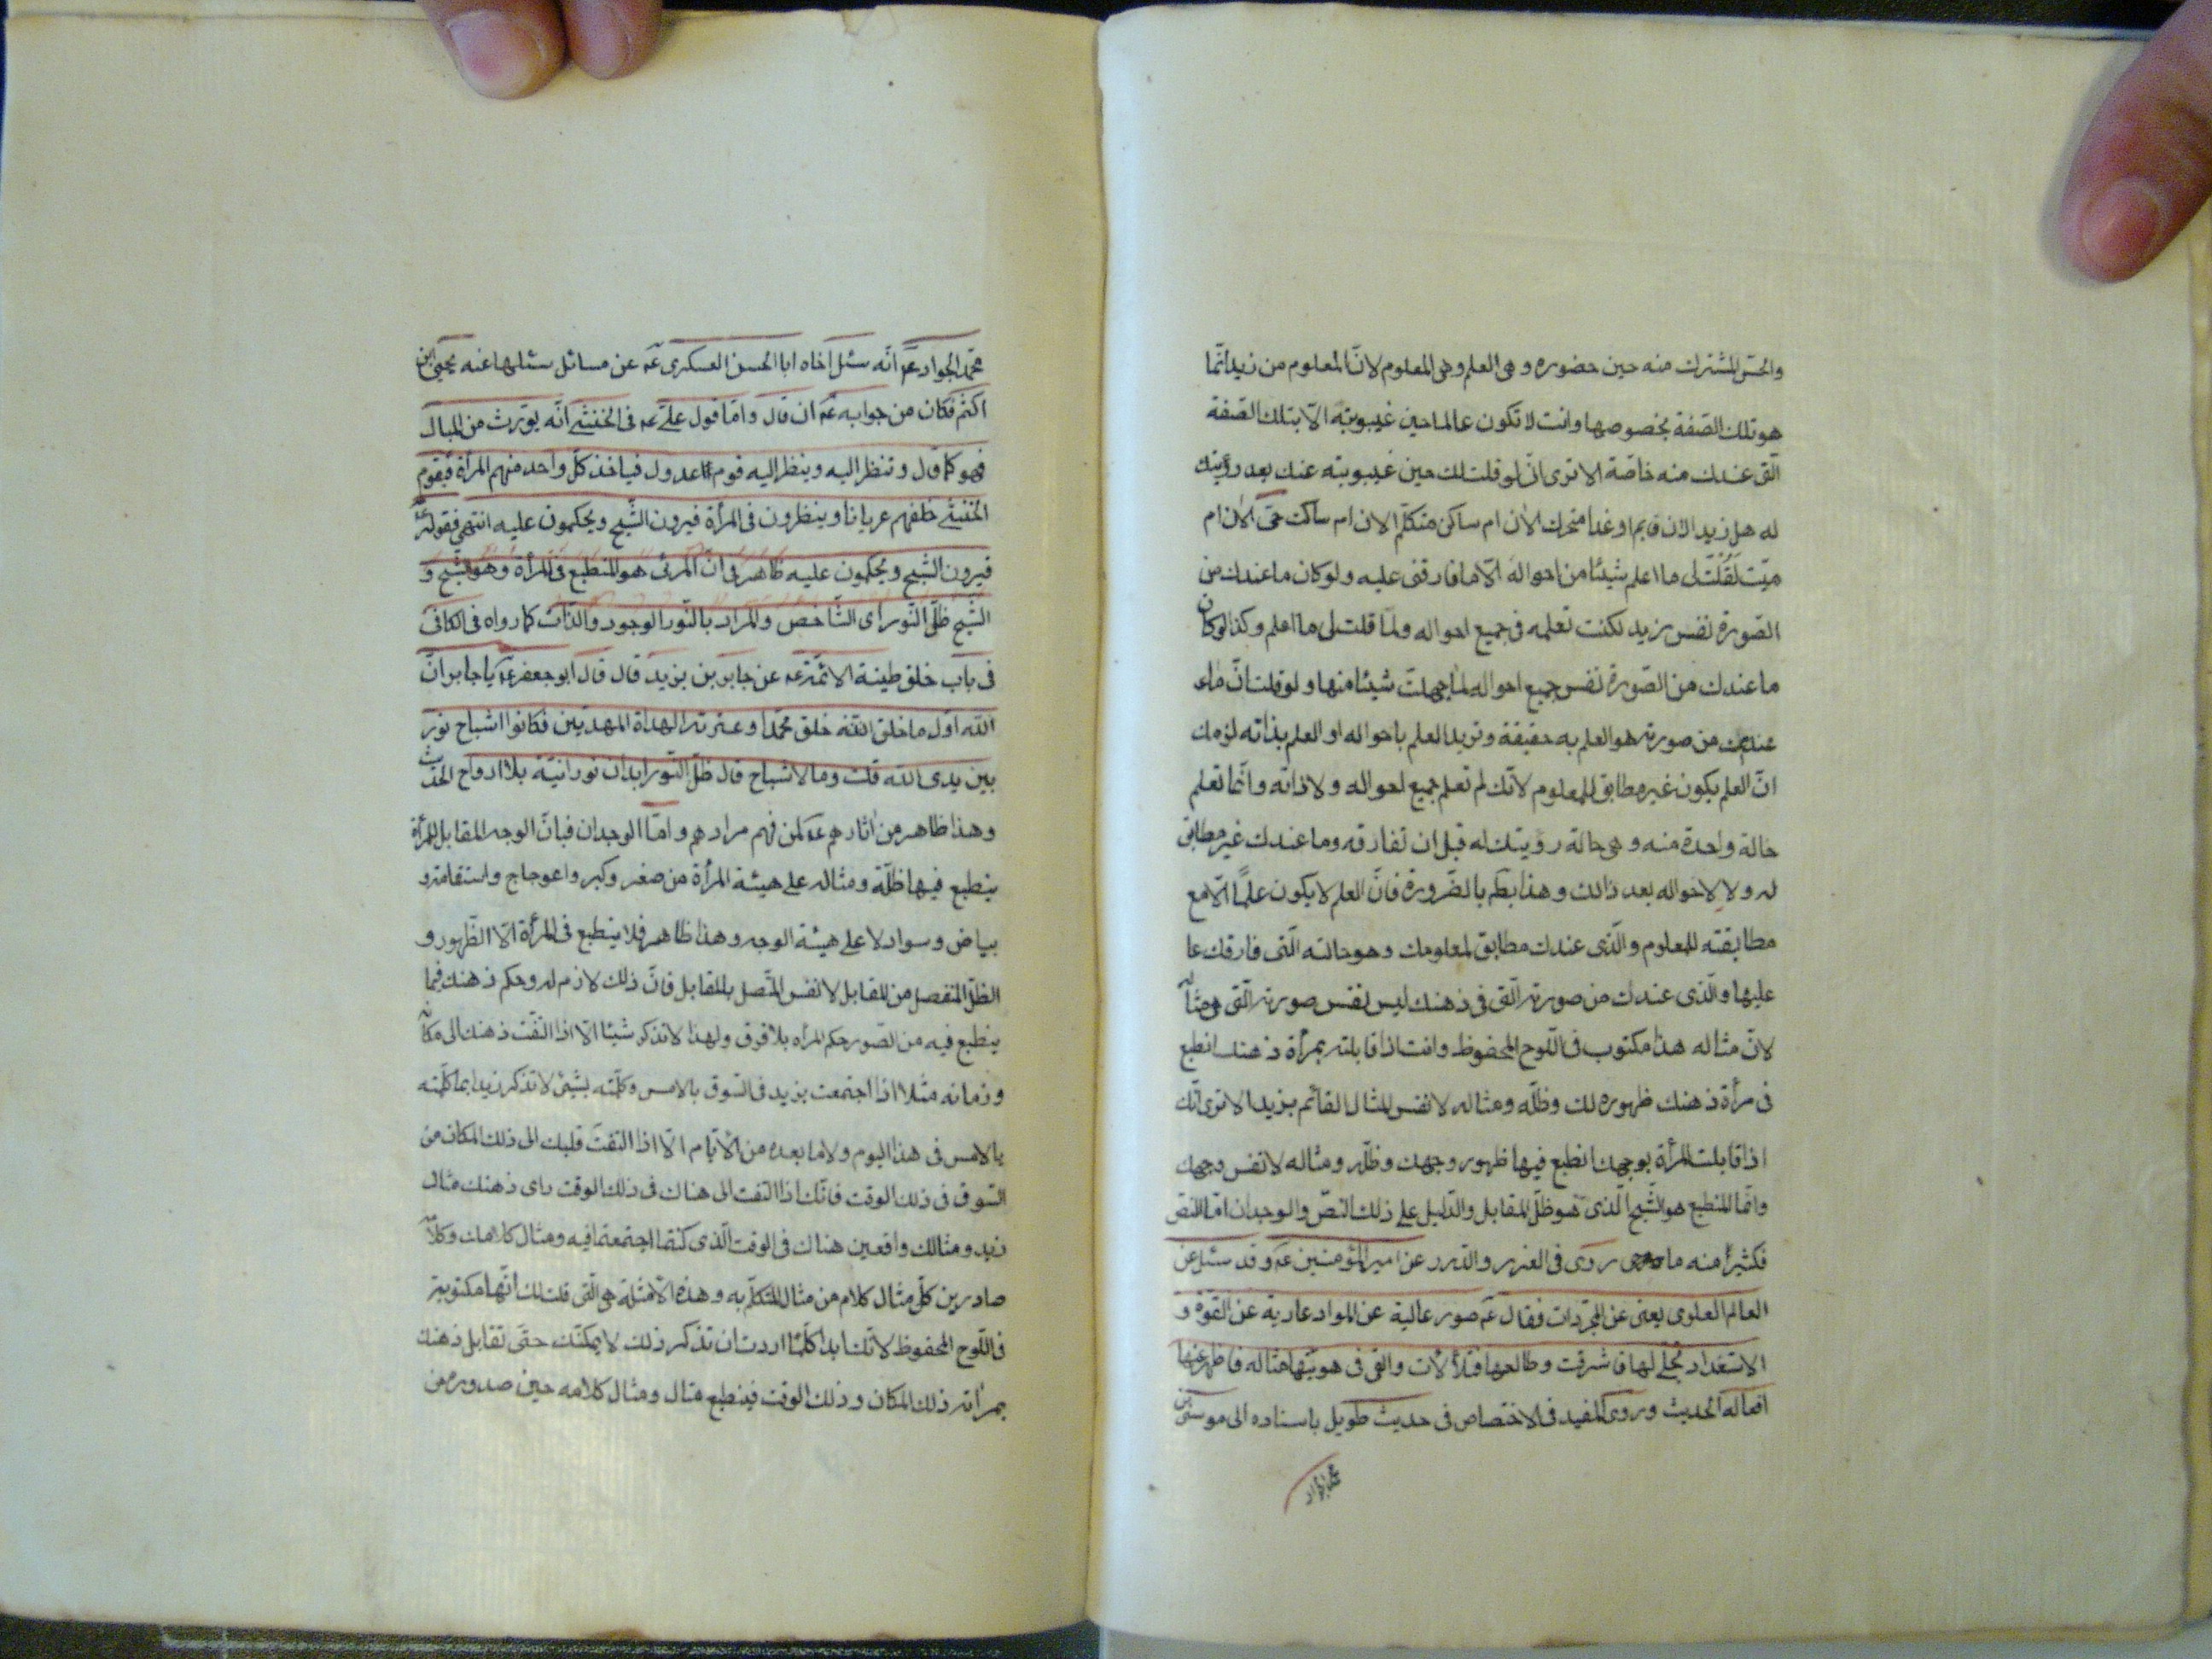 والحسّ المشترك منه حين حضوره و هى العلم و هى المعلوم لانّ المعلوم من زيد انّما
هو تلك الصّفة بخصوصها وانت لا تكون عالما حين غيبوبته الّا بتلك الصّفة
الّتى عندك منه خاصّة الا ترى انّ لو قلت لك حين غيبوبته عنك بعد رؤيتك
له هل زيد الان قايم او غدا متحرك الان ام ساكن متكلّم الان ام ساكت حىّ الان ام
ميّت لَقُلْتَ لى ما اعلم شيئا من احواله الّا ما فارقنى عليه ولو كان ما عندك من
الصّورة نفس زيد لكنت تعلمه فى جميع احواله ولما قلت لى ما اعلم وكذا لو كان
ما عندك من الصّورة نفس جميع احواله لما جهلت شيئا منها ولو قلت انّ ما
عندك من صورته هو العلم به حقيقة وتريد العلم باحواله او العلم بذاته لزمك
انّ العلم يكون غير مطابق للمعلوم لانّك لم تعلم جميع احواله ولا ذاته وانّما تعلم
حالة واحدة منه و هى حالة رؤيتك له قبل ان تفارقه وما عندك غير مطابق
له ولا لاحواله بعد ذلك وهذا بط بالضّرورة فانّ العلم لا يكون علمًا الّا مع
مطابقته للمعلوم والّذى عندك مطابق لمعلومك وهو حالته الّتى فارقك عا
عليها والّذى عندك من صورته الّتى فى ذهنك ليس نفس صورته الّتى هى مثاله
لانّ مثاله هذا مكتوب فى اللّوح المحفوظ وانت اذا قابلته بمرأة ذهنك انطبع
فى مرأة ذهنك ظهوره لك وظلّه ومثاله لا نفس المثال القائم بزيد الا ترى انّك
اذا قابلت المرأة بوجهك انطبع فيها ظهور وجهك وظلّه ومثاله لا نفس وجهك
وانّما المنطبع هو الشّبح الّذى هو ظلّ المقابل والدّليل على ذلك النصّ والوجدان امّا النصّ
فكثيرٌ منه ما روى فى الغرر والدّرر عن امير المؤمنين عم وقد سئل عن
العالم العلوى يعنى عن المجرّدات فقال عم صور عالية عن المواد عارية عن القوّة و
الاستعداد تجلّى لها فاشرقت وطالعها فتلألأت والقى فى هويّتها مثاله فاظهر عنها
افعاله الحديث وروى المفيد فى الاختصاص فى حديث طويل باسناده الى موسى بن
محمد الجواد
محمّد الجواد عم انّه سئل اخاه ابا الحسن العسكرى عم عن مسائل سئلها عنه يحيى بن
اكثم فكان من جوابه عم ان قال وامّا قول علىّ عم فى الخنثى انّه يورث من المبال
فهو كما قال وتنظر اليه وينظر اليه قوم عدول فياخذ كلّ واحد منهم المرأة فيقوم
الخنثى خلفهم عريانا وينظرون فى المرأة فيرون الشّبح ويحكمون عليه انتهى فقوله عم
فيرون الشّبح ويحكمون عليه ظاهر فى انّ المرئى هو المنطبع فى المرأة وهو الشّبح و
الشّبح ظلّ النّور اى الشّاخص والمراد بالنّور الوجود والذّات كما رواه فى الكافى
فى باب خلق طينة الائمّة عم عن جابر بن يزيد قال قال ابو جعفر عم يا جابر انّ
اللّه اوّل ما خلق اللّه خلق محمّدا وعترته الهداة المهديّين فكانوا اشباح نور
بين يدى اللّه قلت وما الاشباح قال ظلّ النّور ابدان نورانيّة بلا ارواح الحديث
وهذا ظاهر من اثارهم عم لمن فهم مرادهم وامّا الوجدان فبانّ الوجه المقابل للمرأة
ينطبع فيها ظلّه ومثاله على هيئة المرأة من صغر وكبر واعوجاج واستقامة و
بياض وسواد لا على هيئة الوجه وهذا ظاهر فلا ينطبع فى المرأة الّا الظّهور و
الظّلّ المنفصل من المقابل لا نفس المتّصل بالمقابل فانّ ذلك لازم له وحكم ذهنك فيما
ينطبع فيه من الصّور حكم المرأة بلا فرق ولهذا لا تذكر شيئا الّا اذا التفت ذهنك الى مكانه
وزمانه مثلا اذا اجتمعت بزيد فى السّوق بالامس وكلّمته بشئ لا تذكر زيدا بما كلّمته
بالامس فى هذا اليوم ولا ما بعده من الايّام الّا اذا التفتَ قلبك الى ذلك المكان من
السّوق فى ذلك الوقت فانّك اذا التفت الى هناك فى ذلك الوقت راى ذهنك مثال
زيد ومثالك واقعين هناك فى الوقت الّذى كنتما اجتمعتما فيه ومثال كلامك وكلامه
صادرين كلّ مثال كلام من مثال المتكلّم به وهذه الامثلة هى الّتى قلت لك انّها مكتوبة
فى اللّوح المحفوظ لانّك ابدا كلّما اردت ان تذكر ذلك لا يمكنك حتّى تقابل ذهنك
بمرأته ذلك المكان وذلك الوقت فينطبع مثال ومثال كلامه حين صدوره من